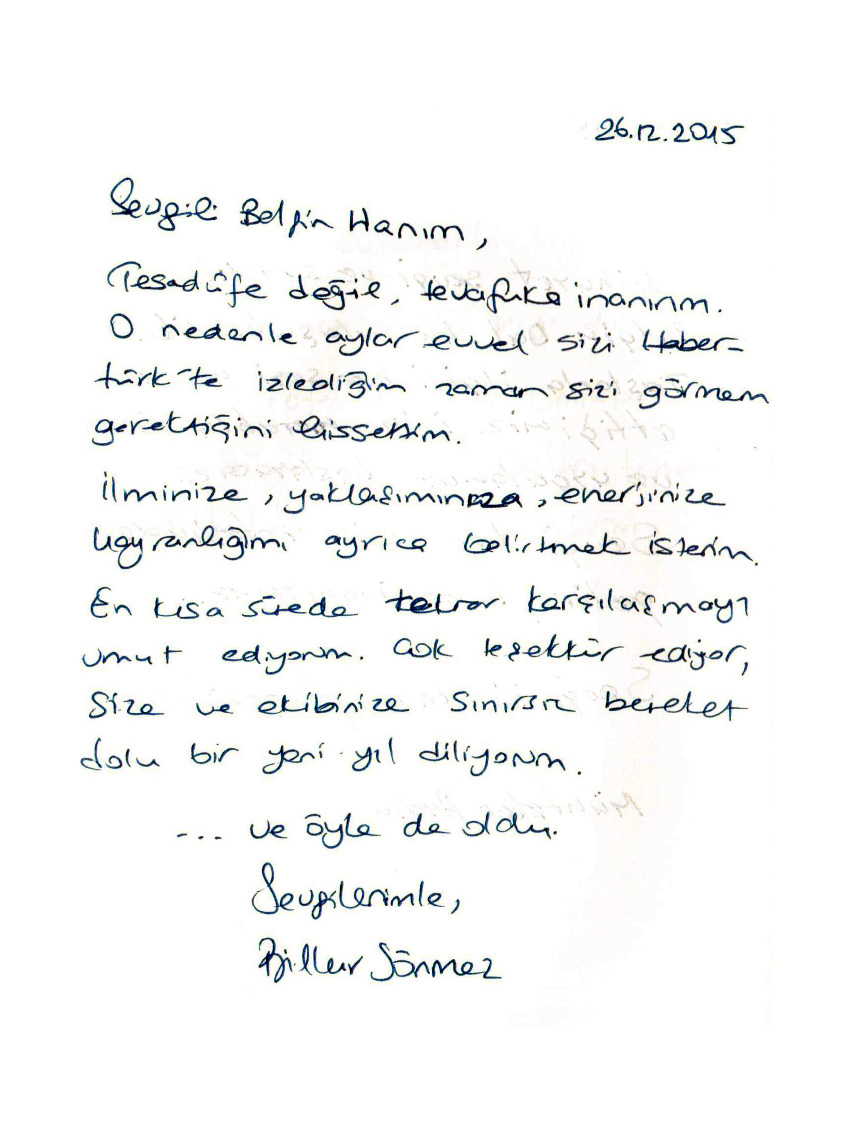 26.12.2015
Sevgili Belgin Hanım,
Tesadüfe değil, tevafuka inanırım.
O nedenle aylar evvel sizi Haber-
türk'te izlediğim zaman sizi görmem
gerektiğini hissettim.
İlminize, yaklaşımınıza, enerjinize
hayranlığımı ayrıca belirtmek isterim.
En kısa sürede tekrar karşılaşmayı
umut ediyorum. Çok teşekkür ediyor,
Size ve ekibinize sınırsız bereket
dolu bir yeni yıl diliyorum.
... ve öyle de oldu.
Sevgilerimle,
Billur Sönmez